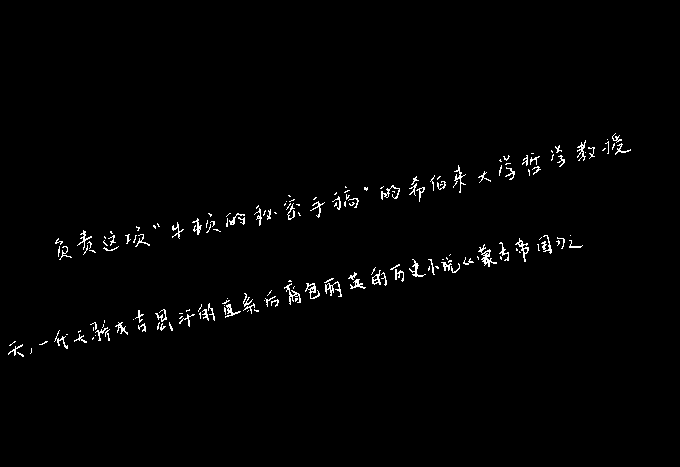 负责这项“牛顿的秘密手稿”的希伯来大学哲学教授
天,一代天骄成吉思汗的直系后裔包丽英的历史小说《蒙古帝国》之